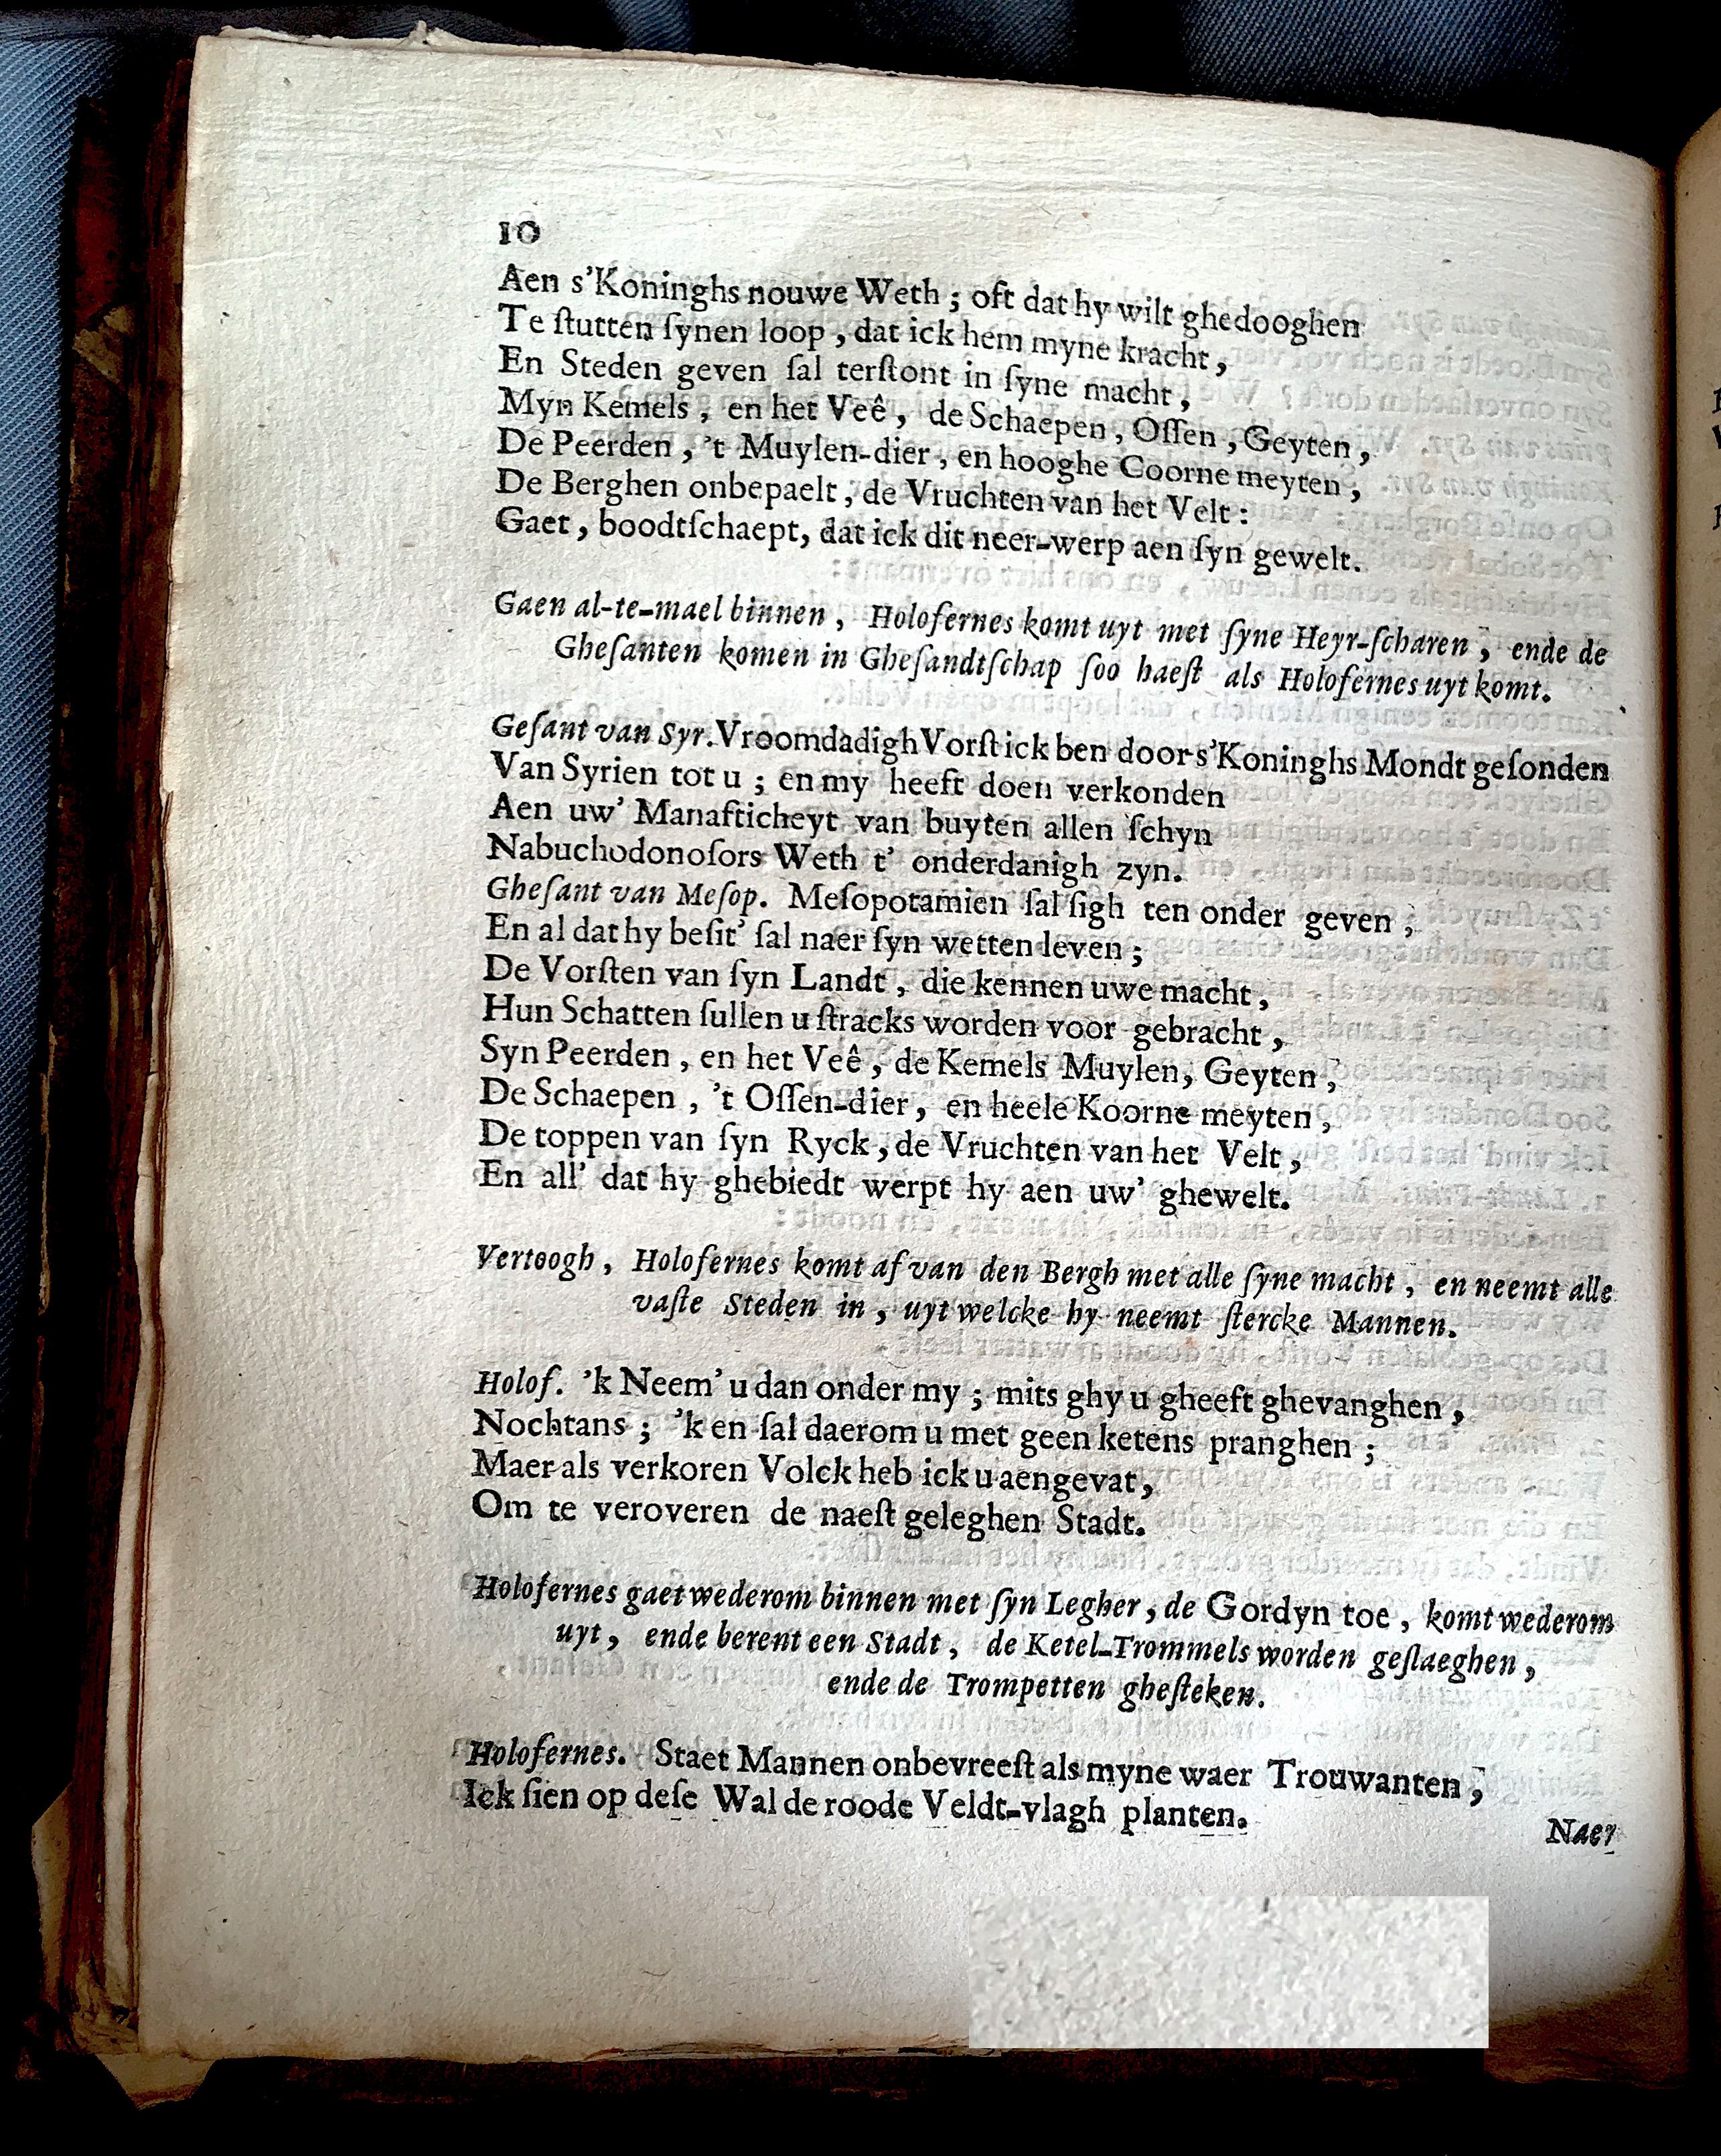 10
Aen s'Koninghs nouwe Weth ; oft dat hy wilt ghedooghen
Te ſtutten ſynen loop , dat ick hem myne kracht ,
En Steden geven ſal terſtont in ſyne macht ,
Myn Kemels , en het Veê , de Schaepen , Oſſen , Geyten ,
De Peerden , 't Muylen-dier , en hooghe Coorne meyten ,
De Berghen onbepaelt , de Vruchten van het Velt :
Gaet , boodtſchaept, dat ick dit neer-werp aen ſyn gewelt.
Gaen al-te-mael binnen , Holofernes komt uyt met ſyne Heyr-ſcharen , ende de
Gheſanten komen in Gheſandtſchap ſoo haeſt als Holofernes uyt komt.
Geſant van Syr. Vroomdadigh Vorſt ick ben door s'Koninghs Mondt geſonden
Van Syrien tot u ; en my heeft doen verkonden
Aen uw' Manafticheyt van buyten allen ſchyn
Nabuchodonoſors Weth t' onderdanigh zyn.
Gheſant van Meſop. Meſopotamien ſal ſigh ten onder geven ;
En al dat hy beſit' ſal naer ſyn wetten leven ;
De Vorſten van ſyn Landt , die kennen uwe macht ,
Hun Schatten ſullen u ſtracks worden voor gebracht ,
Syn Peerden , en het Veê , de Kemels Muylen, Geyten ,
De Schaepen , 't Oſſen-dier , en heele Koorne meyten ,
De toppen van ſyn Ryck , de Vruchten van het Velt ,
En all' dat hy ghebiedt werpt hy aen uw' ghewelt.
Vertoogh , Holofernes komt af van den Bergh met alle ſyne macht , en neemt alle
vaſte Steden in , uyt welcke hy neemt ſtercke Mannen.
Holof. 'k Neem' u dan onder my ; mits ghy u gheeft ghevanghen ,
Nochtans ; 'k en ſal daerom u met geen ketens pranghen ;
Maer als verkoren Volck heb ick u aengevat ,
Om te veroveren de naeſt geleghen Stadt.
Holofernes gaet wederom binnen met ſyn Legher , de Gordyn toe , komt wederom
uyt , ende berent een Stadt , de Ketel-Trommels worden geſlaeghen ,
ende de Trompetten gheſteken.
Holofernes. Staet Mannen onbevreeſt als myne waer Trouwanten ,
Ick ſien op deſe Wal de roode Veldt-vlagh planten.
Naer